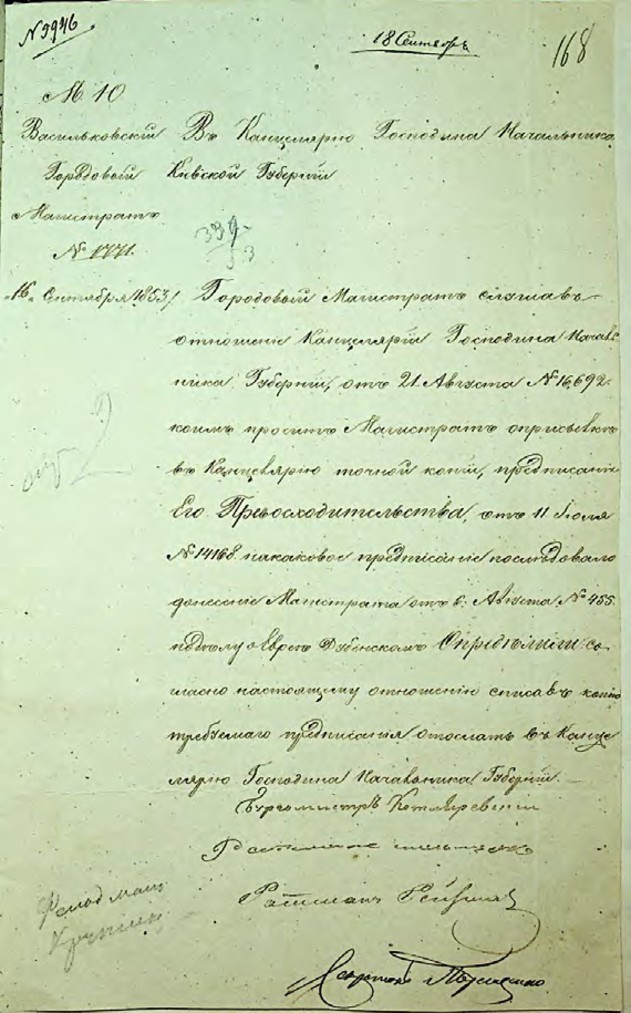 № 9946
18 Сентября
168
М. 10
Васильковский Въ Канцелярію Господина Начальника
Городовой Кіевской Губерніи
Магистратъ
№ 1771.
339
53
"16" Сентября 1853 г Городовой Магистратъ слушавъ
отношеніе Канцеляріи Господина Началь
ника Губерніи, отъ 21 Августа № 16,692
коимъ проситъ Магистратъ о присылкѣ
въ Канцелярію точной копіи, предписанія
Его Превосходительства, отъ 11 Іюля
№ 14168. на каковое предписаніе послѣдовало
донесеніе Магистрата отъ 6. Августа № 455.
по дѣлу о Евреѣ Дубенскомъ Опредѣлили: со-
гласно настоящему отношенію списавъ копію
требуемаго предписанія отослать въ Канце
лярію Господина Начальника Губерніи.
Бургомистръ Котляревскій
Ратманъ
Секретарь